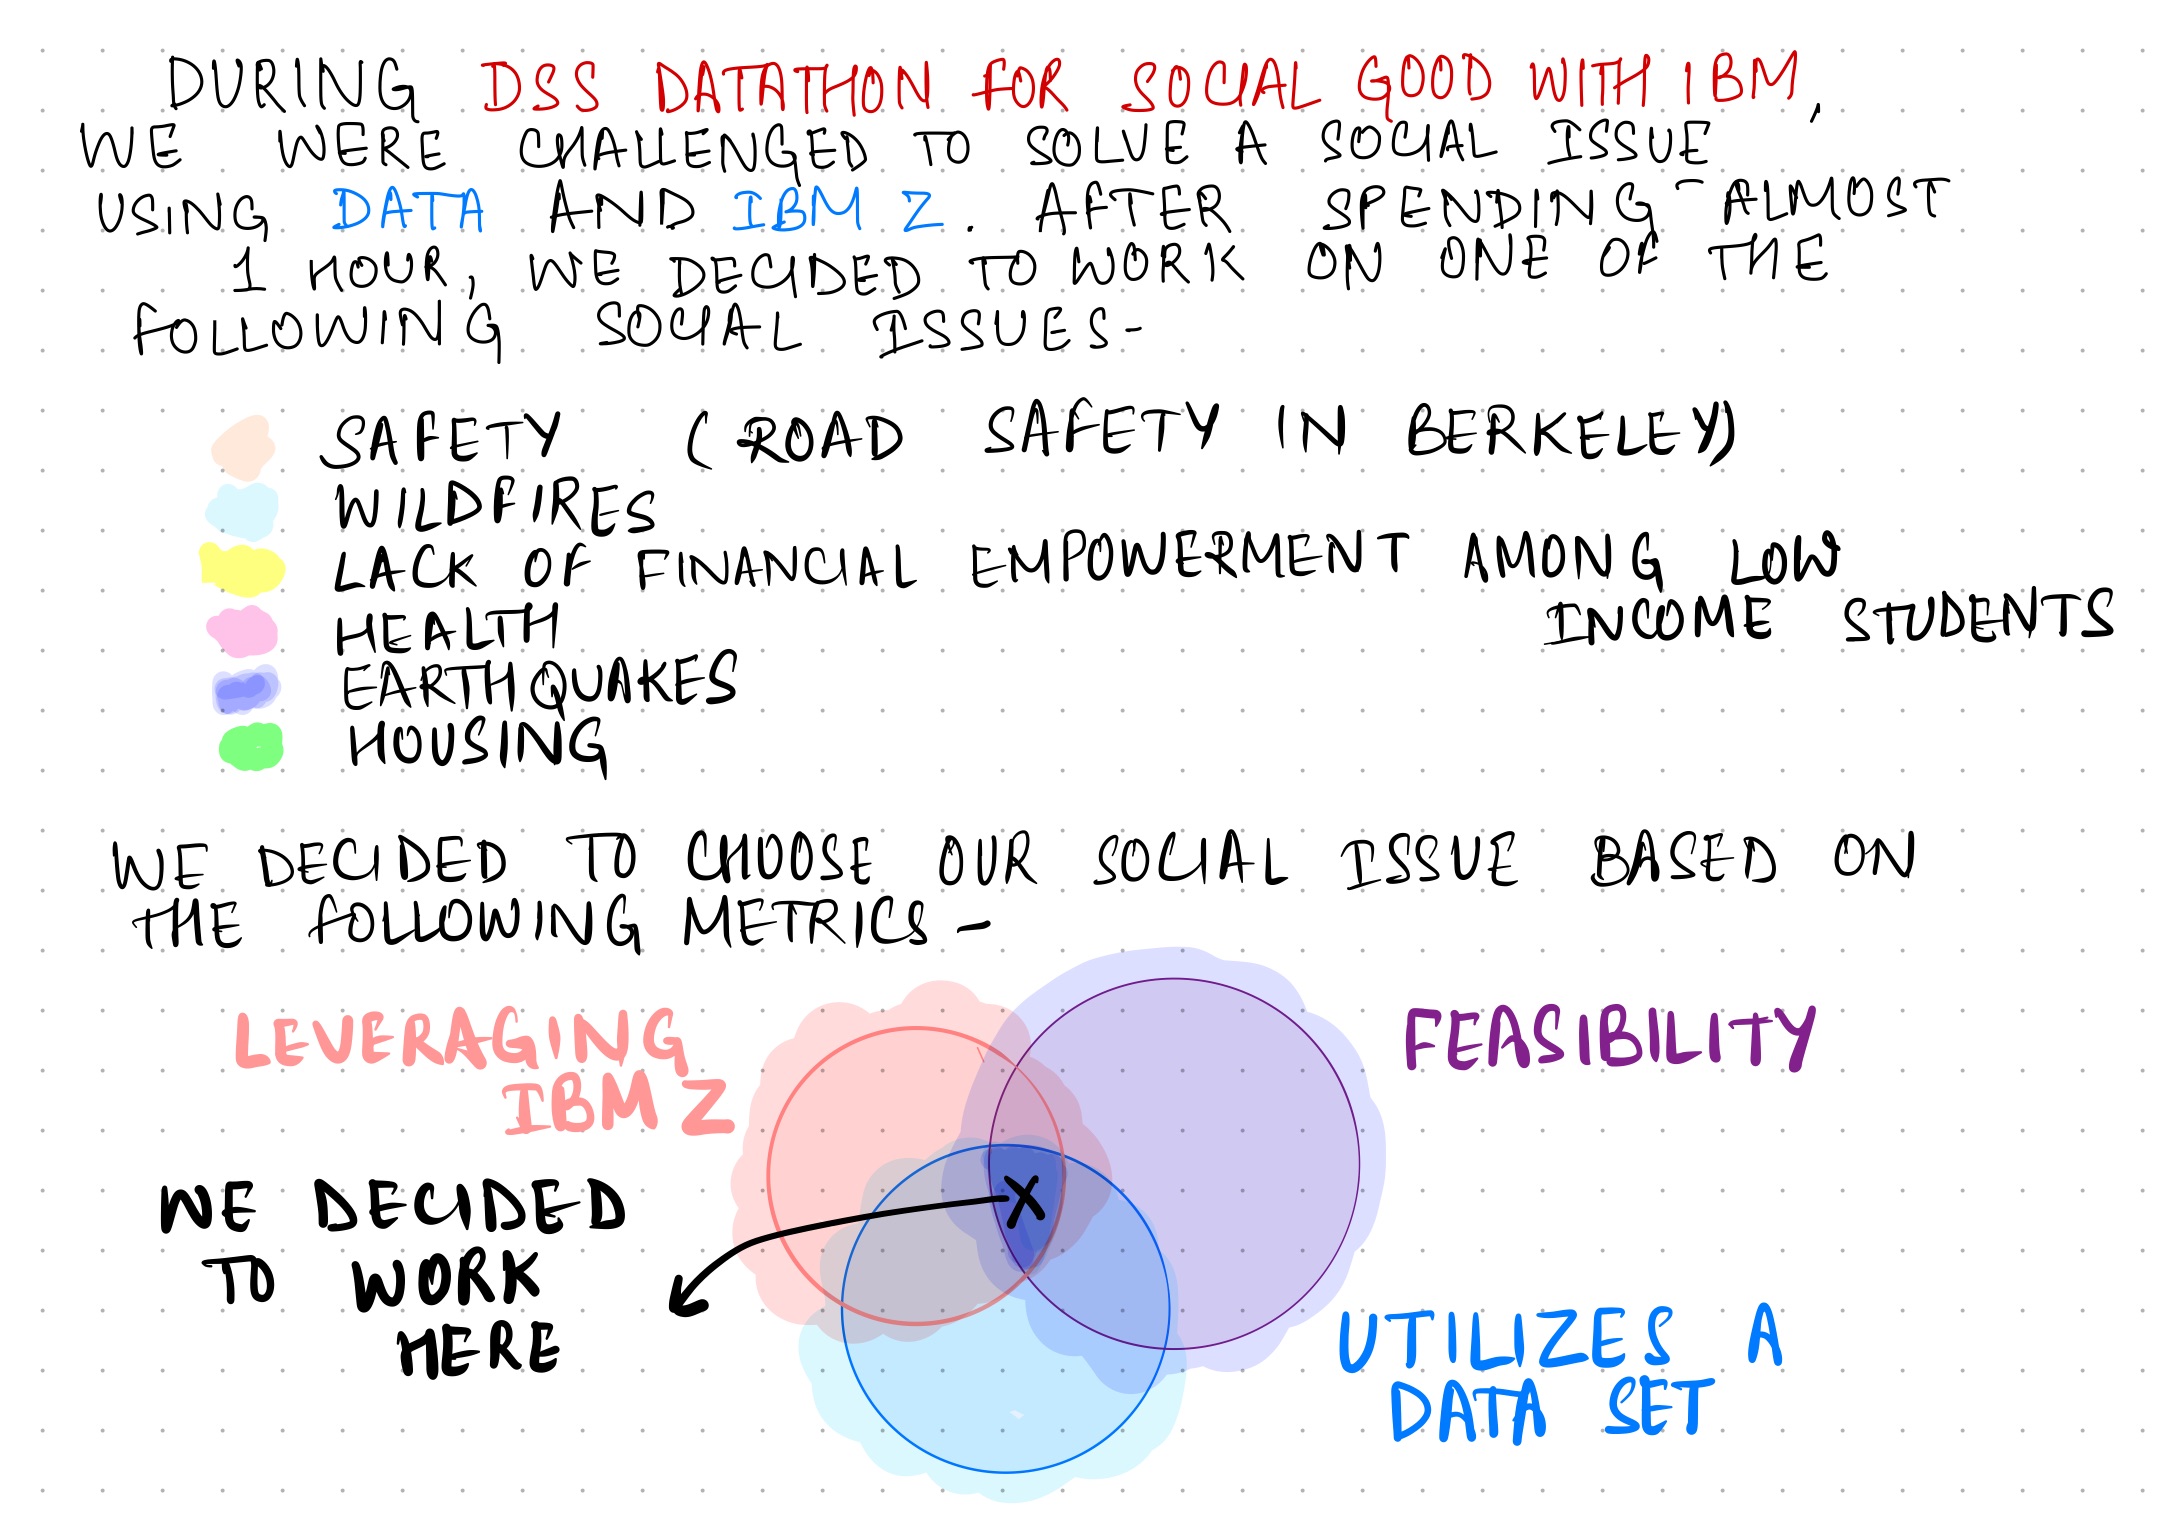 DURING DSS DATATHON FOR SOCIAL GOOD WITH IBM,
WE WERE CHALLENGED TO SOLVE A SOCIAL ISSUE
USING DATA AND IBM Z. AFTER SPENDING ALMOST
1 HOUR, WE DECIDED TO WORK ON ONE OF THE
FOLLOWING SOCIAL ISSUES-
SAFETY (ROAD SAFETY IN BERKELEY)
WILDFIRES
LACK OF FINANCIAL EMPOWERMENT AMONG LOW
INCOME STUDENTS
HEALTH
EARTHQUAKES
HOUSING
WE DECIDED TO CHOOSE OUR SOCIAL ISSUE BASED ON
THE FOLLOWING METRICS -
LEVERAGING
IBM Z
FEASIBILITY
X
WE DECIDED
TO WORK
HERE
UTILIZES A
DATA SET